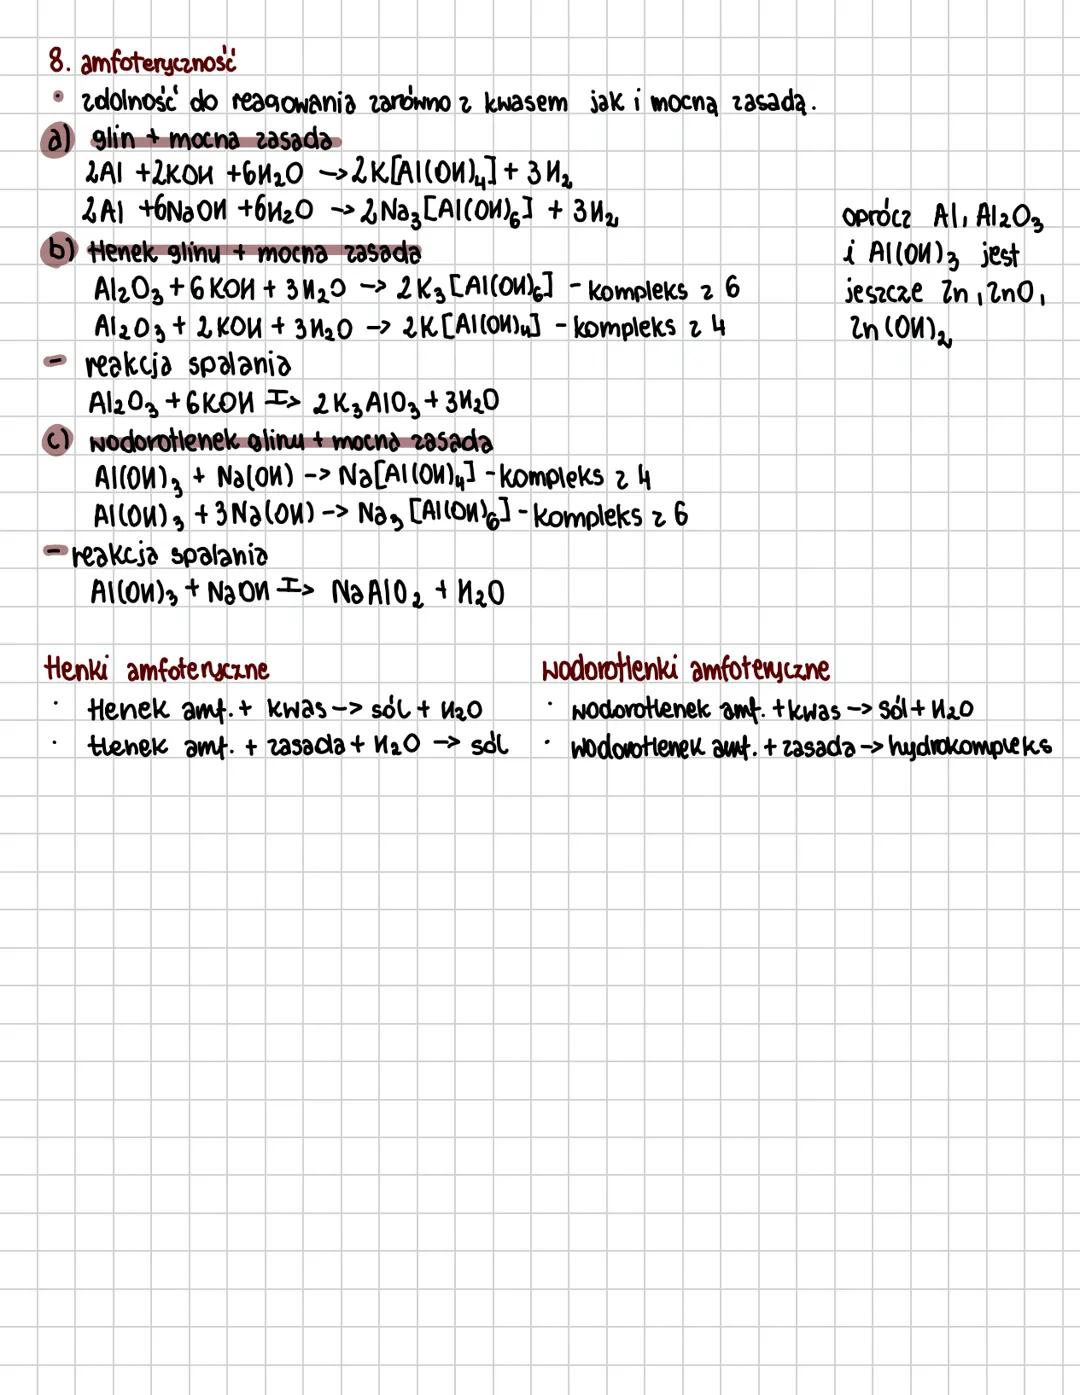 8. amfoteryczność
• zdolność do reagowania zarówno z kwasem jak i mocną zasadą.
a) glin + mocna zasada
2Al + 2KOH + 6H₂O -> 2K[Al(OH)₄] + 3H₂
2Al + 6NaOH + 6H₂O -> 2Na₃[Al(OH)₆] + 3H₂
b) tlenek glinu + mocna zasada
Al₂O₃ + 6KOH + 3H₂O -> 2K₃[Al(OH)₆] - kompleks z 6
Al₂O₃ + 2KOH + 3H₂O -> 2K[Al(OH)₄] - kompleks z 4
oprócz Al, Al₂O₃
i Al(OH)₃ jest
jeszcze Zn, ZnO,
Zn(OH)₂
- reakcja spalania
Al₂O₃ + 6KOH T-> 2K₃AlO₃ + 3H₂O
c) wodorotlenek glinu + mocna zasada
Al(OH)₃ + Na(OH) -> Na[Al(OH)₄] - kompleks z 4
Al(OH)₃ + 3Na(OH) -> Na₃[Al(OH)₆] - kompleks z 6
- reakcja spalania
Al(OH)₃ + NaOH T-> NaAlO₂ + H₂O
tlenki amfoteryczne
• tlenek amf. + kwas -> sól + H₂O
• tlenek amf. + zasada + H₂O -> sól
wodorotlenki amfoteryczne
• wodorotlenek amf. + kwas -> sól + H₂O
• wodorotlenek amf. + zasada -> hydrokompleks